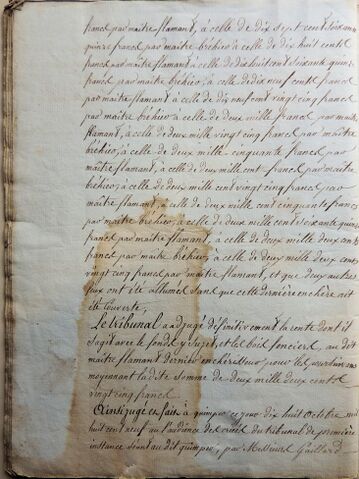 francs par maître flamant, à celle de dix sept cent soixante
quinze francs par maître bréhier à celle de dix huit cents
francs par maître flamant à celle de dix huit cent soixante quinze
francs par maître bréhier, à celle de dix neuf cents francs
par maître flamant, à celle de dix neuf cent vingt cinq francs
par maître bréhier à celle de deux mille francs par maître
flamant, à celle de deux mille vingt cinq francs par maître
bréhier, à celle de deux mille cinquante francs par
maître flamant, à celle de deux mille cent francs par maître
bréhier, à celle de deux mille cent vingt cinq francs par
maître flamant, à celle de deux mille cent cinquante francs
par maître bréhier, à celle de deux mille cent soixante quinze
francs par maître flamant, à celle de deux mille deux cents
francs par maître bréhier, à celle de deux mille deux cent
vingt cinq francs par maître flamant, et que deux autres
feux ont été allumés sans que cette dernière enchère ait
été couverte,
Le tribunal a adjugé définitivement la rente dont il
s'agit avec le fonds y sujet, et les bois fonciers au dit
maître flamant dernier enchérisseur pour les
moyennant la dite somme de deux mille deux cents
vingt cinq francs.
Ainsi jugé et fait à quimper ce jour dix huit Octobre mil
huit cent neuf au l'audience des criées du tribunal de première
instance séant au dit quimper, par Messieurs Gaillard